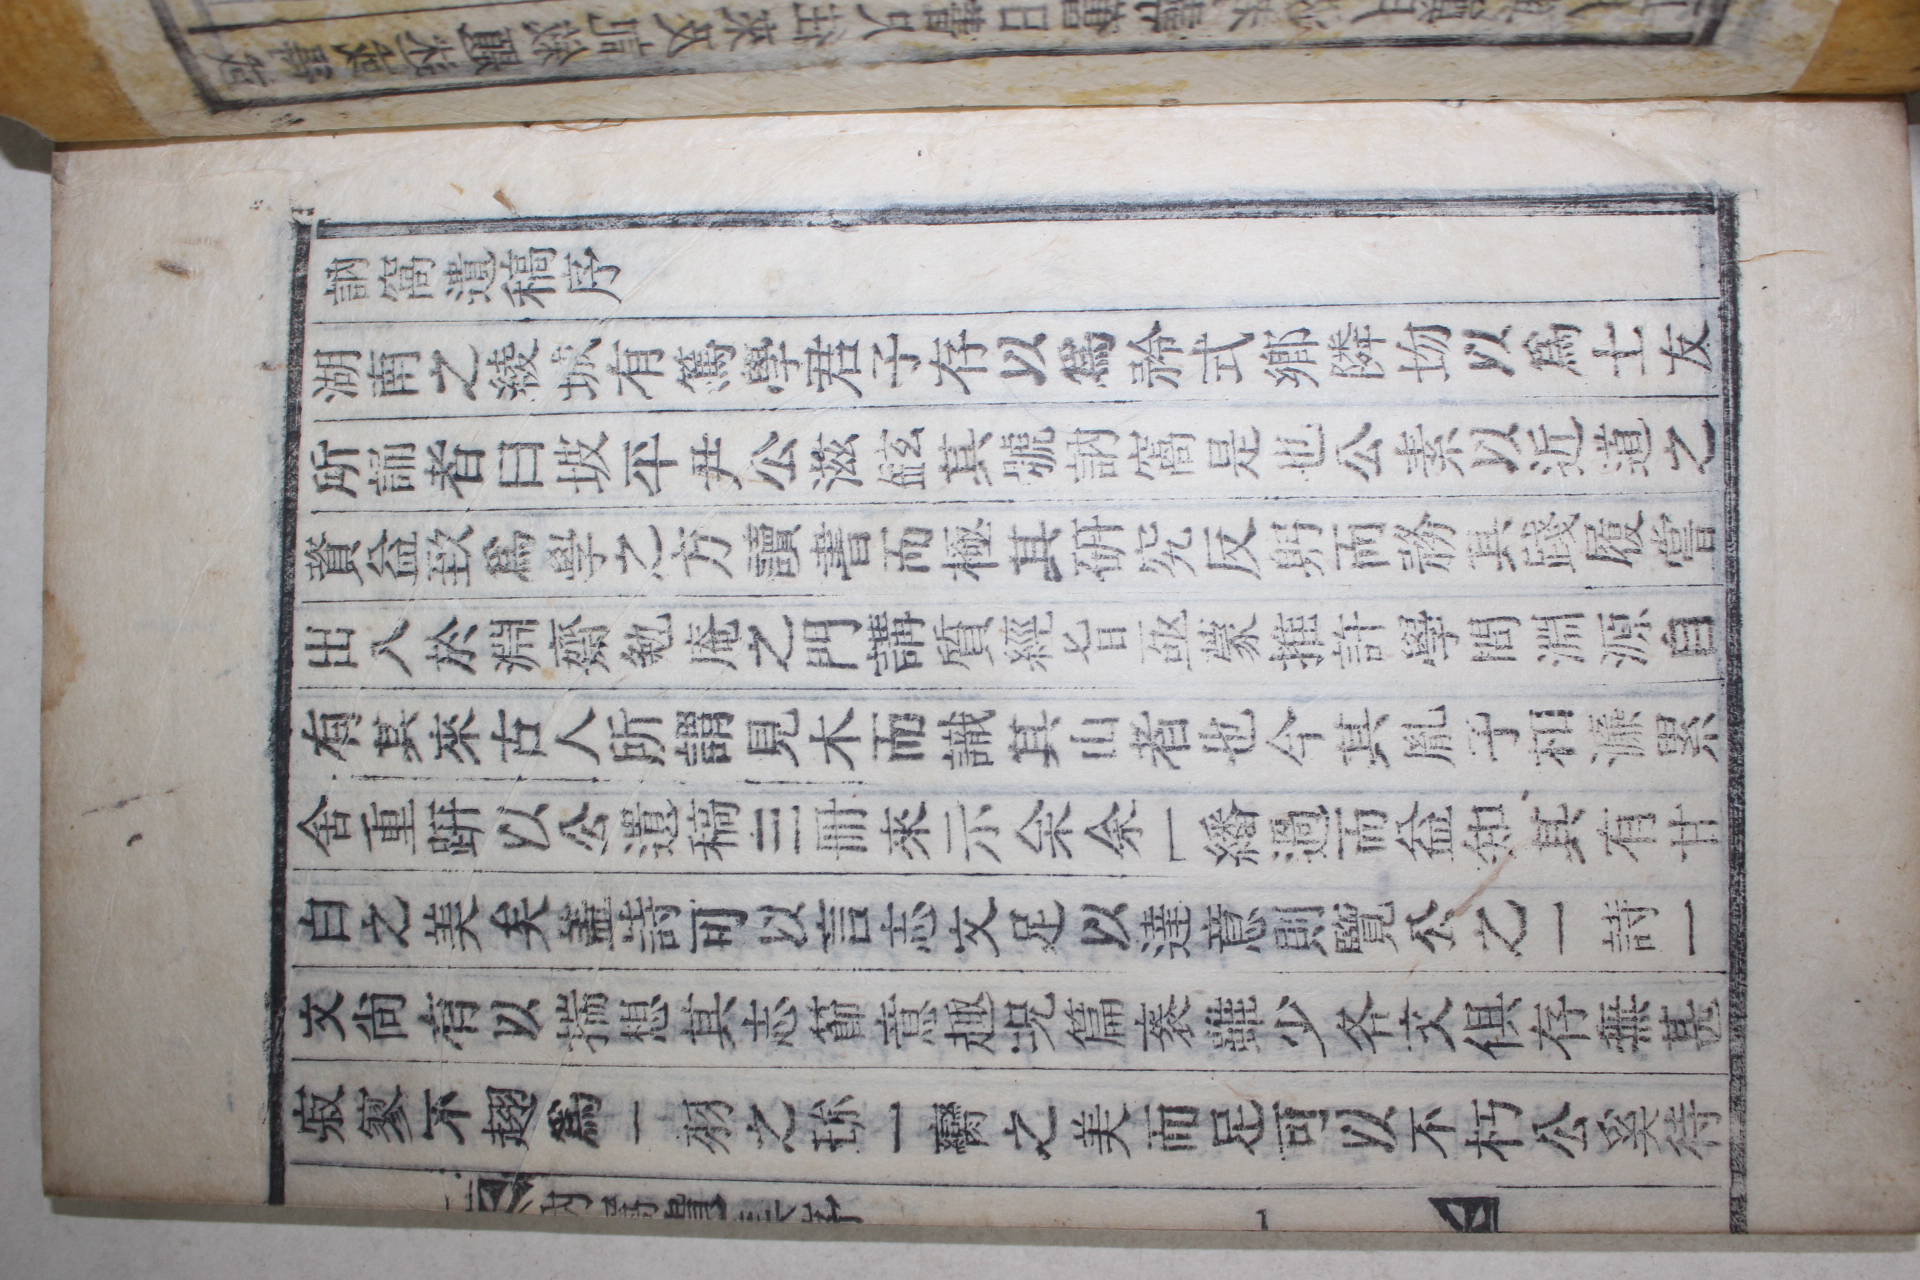 訥窩遺稿序
湖南之綾城有篤學君子存以爲矜式鄉隣均以爲士友
所誦者曰坡平尹公滋鉉其號訥窩是也公素以近道之
資益致爲學之方讀書而極其硏究反躬而務其踐履嘗
出入於淵齋勉庵之門講質經旨亟蒙推許學問淵源自
有其來古人所謂見木而識其山者也今其胤子和濂累
舍重趼以公遺稿三冊來示余余一繙過而益知其有甘
白之美矣盖詩可以言志文足以達意則覽公之一詩一
文尙有以揣想其志節意趣况篇袠雖少各文俱存無甚
寂寥不翅爲一羽之珎一臠之美而足可以不朽公奚待
訥窩遺集序
一